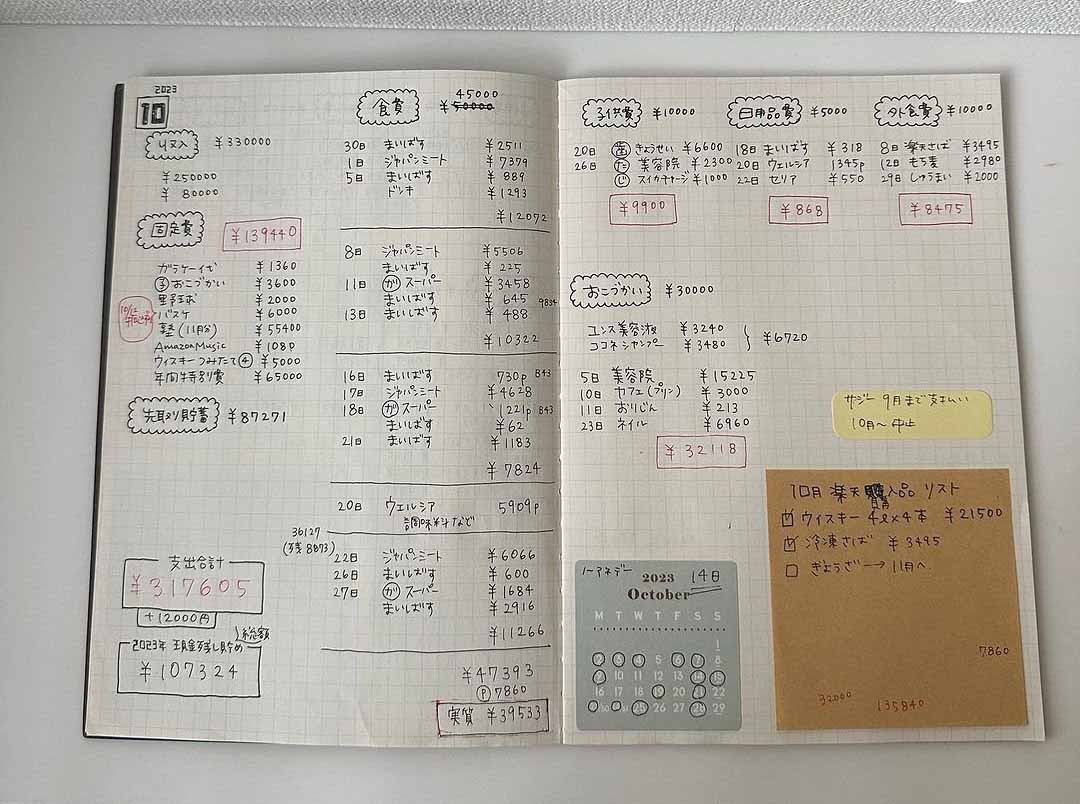 2023
10
収入 ¥330000
¥250000
¥ 80000
固定費 ¥139440
ガラケー代 ¥1360
子 おこづかい ¥3600
野球 ¥2000
バスケ ¥6000
塾 (11月分) ¥55400
AmazonMusic ¥1080
ウィスキーつみたて④ ¥5000
年間特別費 ¥65000
10/12
先取り貯蓄 ¥87271
支出合計
¥317605
+12000円
総額
2023年 現金残し貯め
¥107324
食費 45000
¥50000
30日 まいばす ¥2511
1日 ジャパンミート ¥7379
5日 まいばす ¥889
ドンキ ¥1293
¥12072
8日 ジャパンミート ¥5506
まいばす ¥225
11日 (が)スーパー ¥3458
まいばす ¥645 9834
13日 まいばす ¥488
¥10322
16日 まいばす 730p B43
17日 ジャパンミート ¥4628
18日 (が)スーパー 1221p B43
まいばす ¥62
21日 まいばす ¥1183
¥7824
20日 ウェルシア 5909p
調味料など
36127
(残 8873)
22日 ジャパンミート ¥6066
26日 まいばす ¥600
27日 (が)スーパー ¥1684
まいばす ¥2916
¥11266
¥47393
Ⓟ7860
実質 ¥39533
子供費 ¥10000
20日 歯 きょうせい ¥6600
26日 た 美容院 ¥2300
じ スイカチャージ ¥1000
¥9900
日用品費 ¥5000
18日 まいばす ¥318
20日 ウェルシア 1345p
22日 セリア ¥550
¥868
外食費 ¥10000
8日 楽天さば ¥3495
12日 もち麦 ¥2980
29日 しゅうまい ¥2000
¥8475
おこづかい ¥30000
ユンス美容液 ¥3240
ココネシャンプー ¥3480
¥6720
5日 美容院 ¥15225
10日 カフェ(プリン) ¥3000
11日 おりじん ¥213
23日 ネイル ¥6960
¥32118
サジー 9月まで支払い
10月〜中止
10月 楽天購入品 リスト
☑ ウィスキー 4ℓ×4本 ¥21500
☑ 冷凍さば ¥3495
□ ぎょうざー→11月へ
7860
32000 135840
ノーマネデー
14日
2023
October
M T W T F S S
1
2 3 4 5 6 7 8
9 10 11 12 13 14 15
16 17 18 19 20 21 22
30 31 25 26 27 28 29